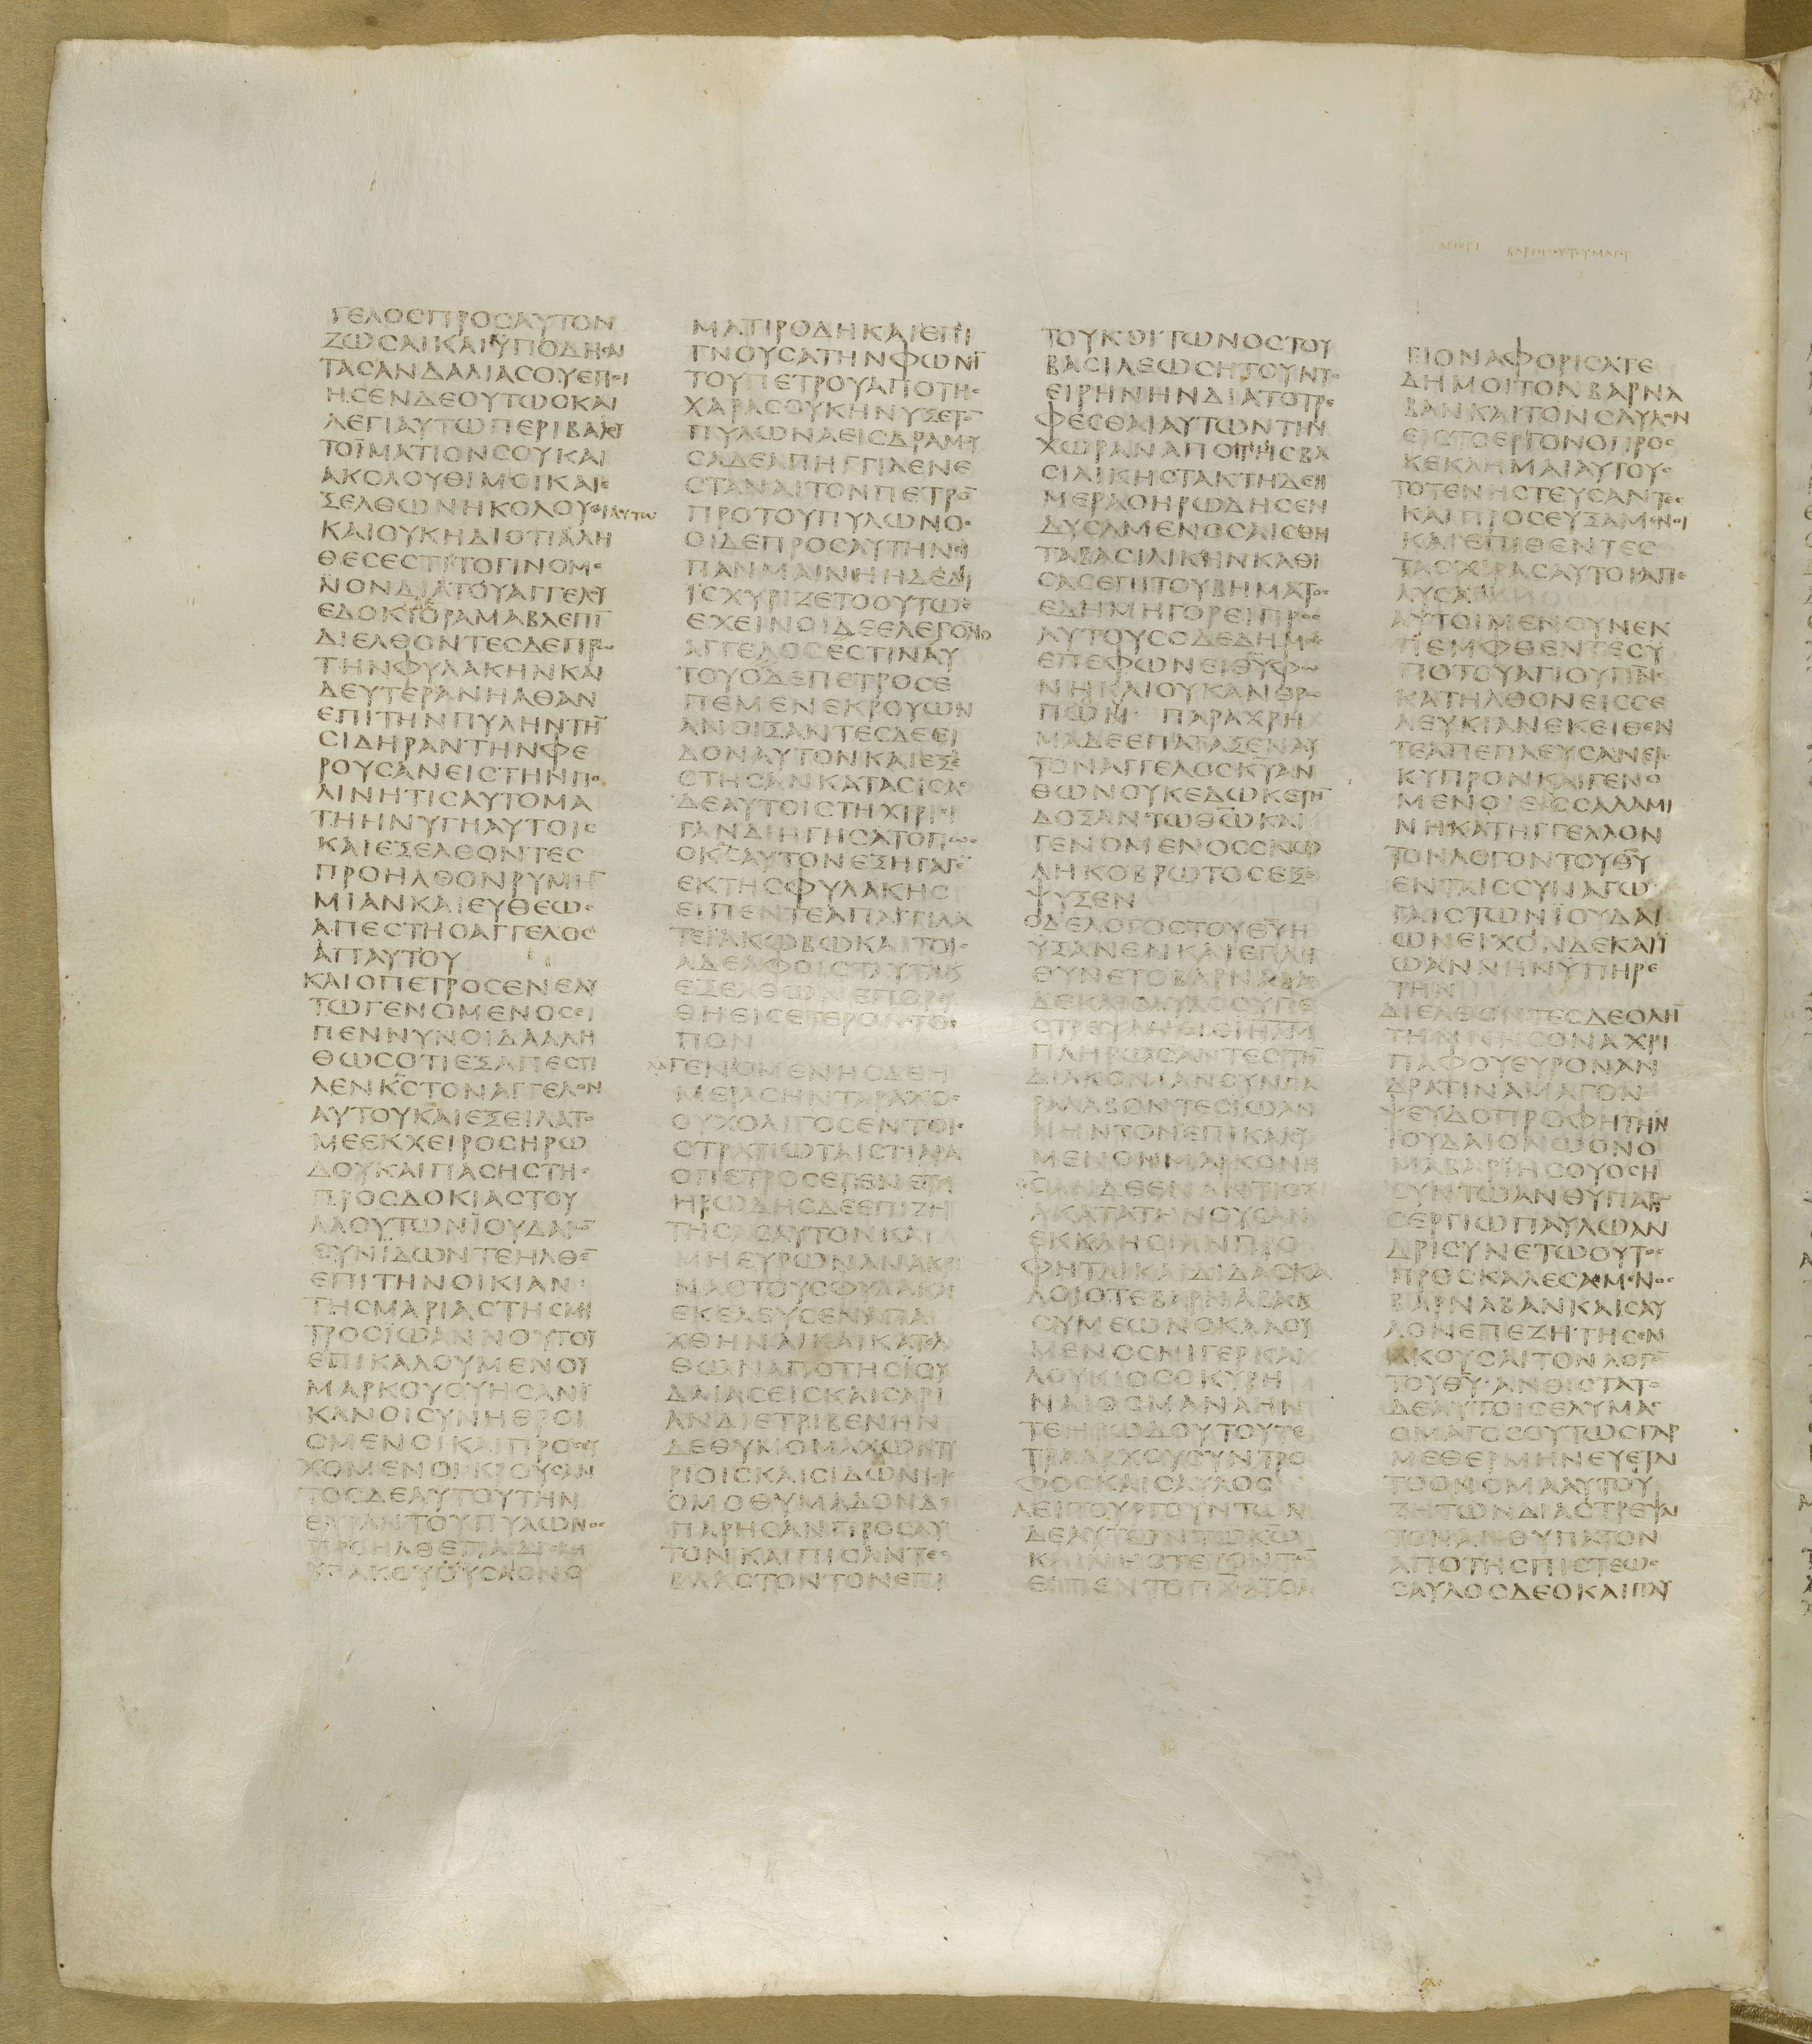 ΓΕΛΟCΠΡΟCΑΥΤΟΝ
ΖΩCΑΙΚΑΙΫΠΟΔΗCΑΙ
ΤΑCΑΝΔΑΛΙΑCΟΥΕΠΟΙ
ΗCΕΝΔΕΟΥΤΩCΚΑΙ
ΛΕΓΙΑΥΤΩΠΕΡΙΒΑΛΟΥ
ΤΟΪΜΑΤΙΟΝCΟΥΚΑΙ
ΑΚΟΛΟΥΘΙΜΟΙΚΑΙΕ
ΞΕΛΘΩΝΗΚΟΛΟΥΘΙΑΥΤΩ
ΚΑΙΟΥΚΗΔΙΟΤΙΑΛΗ
ΘΕCΕCΤΙΤΟΓΙΝΟΜΕ
ΝΟΝΔΙΑΤΟΥΑΓΓΕΛΟΥ
ΕΔΟΚΙΟΡΑΜΑΒΛΕΠΙ̅
ΔΙΕΛΘΟΝΤΕCΔΕΠΡΩ
ΤΗΝΦΥΛΑΚΗΝΚΑΙ
ΔΕΥΤΕΡΑΝΗΛΘΑΝ
ΕΠΙΤΗΝΠΥΛΗΝΤΗ̅
CΙΔΗΡΑΝΤΗΝΦΕ
ΡΟΥCΑΝΕΙCΤΗΝΠΟ
ΛΙΝΗΤΙCΑΥΤΟΜΑ
ΤΗΗΝΥΓΗΑΥΤΟΙC
ΚΑΙΕΞΕΛΘΟΝΤΕC
ΠΡΟΗΛΘΟΝΡΥΜΗ̅
ΜΙΑΝΚΑΙΕΥΘΕΩC
ΑΠΕCΤΗΟΑΓΓΕΛΟC
ΑΠΑΥΤΟΥ
ΚΑΙΟΠΕΤΡΟCΕΝΕΑΥ
ΤΩΓΕΝΟΜΕΝΟCΕΙ
ΠΕΝΝΥΝΟΙΔΑΑΛΗ
ΘΩCΟΤΙΕΞΑΠΕCΤΙ
ΛΕΝΚ̅C̅ΤΟΝΑΓΓΕΛΟΝ
ΑΥΤΟΥΚΑΙΕΞΕΙΛΑΤΟ
ΜΕΕΚΧΕΙΡΟCΗΡΩ
ΔΟΥΚΑΙΠΑCΗCΤΗC
ΠΡΟCΔΟΚΙΑCΤΟΥ
ΛΑΟΥΤΩΝΪΟΥΔΑΙΩ̅
CΥΝΙΔΩΝΤΕΗΛΘΕ̅
ΕΠΙΤΗΝΟΙΚΙΑΝ
ΤΗCΜΑΡΙΑCΤΗCΜΗ
ΤΡΟCΪΩΑΝΝΟΥΤΟΥ
ΕΠΙΚΑΛΟΥΜΕΝΟΥ
ΜΑΡΚΟΥΟΥΗCΑΝΪ
ΚΑΝΟΙCΥΝΗΘΡΟΙ
CΜΕΝΟΙΚΑΙΠΡΟCΕΥ
ΧΟΜΕΝΟΙΚΡΟΥCΑΝ
ΤΟCΔΕΑΥΤΟΥΤΗΝ
ΘΥΡΑΝΤΟΥΠΥΛΩΝΟC
ΠΡΟΗΛΘΕΠΑΙΔΙCΚΗ
ΥΠΑΚΟΥΟΥCΑΟΝΟ
ΜΑΤΙΡΟΔΗΚΑΙΕΠΙ
ΓΝΟΥCΑΤΗΝΦΩΝΗ̅
ΤΟΥΠΕΤΡΟΥΑΠΟΤΗC
ΧΑΡΑCΟΥΚΗΝΥΞΕΤΟ̅
ΠΥΛΩΝΑΕΙCΔΡΑΜΟΥ
CΑΔΕΑΠΗΓΓΙΛΕΝΕ
CΤΑΝΑΙΤΟΝΠΕΤΡΟ̅
ΠΡΟΤΟΥΠΥΛΩΝΟC
ΟΙΔΕΠΡΟCΑΥΤΗΝΕΙ
ΠΑΝΜΑΙΝΗΗΔΕΔΙ
ΪCΧΥΡΙΖΕΤΟΟΥΤΩC
ΕΧΕΙΝΟΙΔΕΕΛΕΓΟΝΟ
ΑΓΓΕΛΟCΕCΤΙΝΑΥ
ΤΟΥΟΔΕΠΕΤΡΟCΕ
ΠΕΜΕΝΕΚΡΟΥΩΝ
ΑΝΟΙΞΑΝΤΕCΔΕΕΙ
ΔΟΝΑΥΤΟΝΚΑΙΕΞΕ
CΤΗCΑΝΚΑΤΑCΙCΑC
ΔΕΑΥΤΟΙCΤΗΧΙΡΙCΙ
ΓΑΝΔΙΗΓΗCΑΤΟΠΩC
ΟΚ̅C̅ΑΥΤΟΝΕΞΗΓΑΓΕ̅
ΕΚΤΗCΦΥΛΑΚΗC
ΕΙΠΕΝΤΕΑΠΑΓΓΙΛΑ
ΤΕΪΑΚΩΒΩΚΑΙΤΟΙC
ΑΔΕΛΦΟΙCΤΑΥΤΑΚΑΙ
ΕΞΕΛΘΩΝΕΠΟΡΕΥ
ΘΗΕΙCΕΤΕΡΟΝΤΟ
ΠΟΝ
ΓΕΝΟΜΕΝΗCΔΕΗ
ΜΕΡΑCΗΝΤΑΡΑΧΟC
ΟΥΚΟΛΙΓΟCΕΝΤΟΙC
CΤΡΑΤΙΩΤΑΙCΤΙΑΡΑ
ΟΠΕΤΡΟCΕΓΕΝΕΤΟ
ΗΡΩΔΗCΔΕΕΠΙΖΗ
ΤΗCΑCΑΥΤΟΝΚΑΙ
ΜΗΕΥΡΩΝΑΝΑΚΡΙ
ΝΑCΤΟΥCΦΥΛΑΚΑC
ΕΚΕΛΕΥCΕΝΑΠΑ
ΧΘΗΝΑΙΚΑΙΚΑΤΕΛ
ΘΩΝΑΠΟΤΗCΪΟΥ
ΔΑΙΑCΕΙCΚΑΙCΑΡΙ
ΑΝΔΙΕΤΡΙΒΕΝΗΝ
ΔΕΘΥΜΟΜΑΧΩΝΤΥ
ΡΙΟΙCΚΑΙCΙΔΩΝΙΟΙC
ΟΜΟΘΥΜΑΔΟΝΔΕ
ΠΑΡΗCΑΝΠΡΟCΑΥ
ΤΟΝΚΑΙΠΙCΑΝΤΕC
ΒΛΑCΤΟΝΤΟΝΕΠΙ
ΤΟΥΚΟΙΤΩΝΟCΤΟΥ
ΒΑCΙΛΕΩCΗΤΟΥΝΤΟ
ΕΙΡΗΝΗΝΔΙΑΤΟΤΡΕ
ΦΕCΘΑΙΑΥΤΩΝΤΗΝ
ΧΩΡΑΝΑΠΟΤΗCΒΑ
CΙΛΙΚΗCΤΑΚΤΗΔΕΗ
ΜΕΡΑΟΗΡΩΔΗCΕΝ
ΔΥCΑΜΕΝΟCΑΙCΘΗ
ΤΑΒΑCΙΛΙΚΗΝΚΑΘΙ
CΑCΕΠΙΤΟΥΒΗΜΑΤΟC
ΕΔΗΜΗΓΟΡΕΙΠΡΟC
ΑΥΤΟΥCΟΔΕΔΗΜΟC
ΕΠΕΦΩΝΕΙΘ̅Υ̅ΦΩ
ΝΗΚΑΙΟΥΚΑΝΘΡΩ
ΠΩΝ ΠΑΡΑΧΡΗ
ΜΑΔΕΕΠΑΤΑΞΕΝΑΥ
ΤΟΝΑΓΓΕΛΟCΚ̅Υ̅ΑΝ
ΘΩΝΟΥΚΕΔΩΚΕΤΗ̅
ΔΟΞΑΝΤΩΘ̅Ω̅ΚΑΙ
ΓΕΝΟΜΕΝΟCCΚΩ
ΛΗΚΟΒΡΩΤΟCΕΞΕ
ΨΥΞΕΝ
ΟΔΕΛΟΓΟCΤΟΥΘ̅Υ̅Η
ΥΞΑΝΕΝΚΑΙΕΠΛΗ
ΘΥΝΕΤΟΒΑΡΝΑΒΑC
ΔΕΚΑΙCΑΥΛΟCΥΠΕ
CΤΡΕΨΑΝΕΙCΙΗΛΗΜ
ΠΛΗΡΩCΑΝΤΕCΤΗ̅
ΔΙΑΚΟΝΙΑΝCΥΝΠΑ
ΡΑΛΑΒΟΝΤΕCΪΩΑΝ
ΝΗΝΤΟΝΕΠΙΚΛΗΘ
ΜΕΝΟΝΜΑΡΚΟΝΗ
CΑΝΔΕΕΝΑΝΤΙΟΧΙ
ΑΚΑΤΑΤΗΝΟΥCΑΝ
ΕΚΚΛΗCΙΑΝΠΡΟ
ΦΗΤΑΙΚΑΙΔΙΔΑCΚΑ
ΛΟΙΟΤΕΒΑΡΝΑΒΑCΚΑΙ
CΥΜΕΩΝΟΚΑΛΟΥ
ΜΕΝΟCΝΙΓΕΡΚΑΙ
ΛΟΥΚΙΟCΟΚΥΡΗ
ΝΑΙΟCΜΑΝΑΗΝ
ΤΕΗΡΩΔΟΥΤΟΥΤΕ
ΤΡΑΑΡΧΟΥCΥΝΤΡΟ
ΦΟCΚΑΙCΑΥΛΟC
ΛΕΙΤΟΥΡΓΟΥΝΤΩΝ
ΔΕΑΥΤΩΝΤΩΚ̅Ω̅
ΚΑΙΝΗCΤΕΥΟΝΤΩ̅
ΕΙΠΕΝΤΟΠ̅Ν̅Α̅ΤΟΑ
ΓΙΟΝΑΦΟΡΙCΑΤΕ
ΔΗΜΟΙΤΟΝΒΑΡΝΑ
ΒΑΝΚΑΙΤΟΝCΑΥΛΟΝ
ΕΙCΤΟΕΡΓΟΝΟΠΡΟC
ΚΕΚΛΗΜΑΙΑΥΤΟΥC
ΤΟΤΕΝΗCΤΕΥCΑΝΤΕC
ΚΑΙΠΡΟCΕΥΞΑΜΕΝΟΙ
ΚΑΙΕΠΙΘΕΝΤΕC
ΤΑCΧΙΡΑCΑΥΤΟΙCΑΠΕ
ΛΥCΑΝ
ΑΥΤΟΙΜΕΝΟΥΝΕΚ
ΠΕΜΦΘΕΝΤΕCΥ
ΠΟΤΟΥΑΓΙΟΥΠ̅Ν̅C̅
ΚΑΤΗΛΘΟΝΕΙCCΕ
ΛΕΥΚΙΑΝΕΚΕΙΘΕΝ
ΤΕΑΠΕΠΛΕΥCΑΝΕΙC
ΚΥΠΡΟΝΚΑΙΓΕΝΟ
ΜΕΝΟΙΕΙCCΑΛΑΜΙ
ΝΗΚΑΤΗΓΓΕΛΛΟΝ
ΤΟΝΛΟΓΟΝΤΟΥΘ̅Υ̅
ΕΝΤΑΙCCΥΝΑΓΩ
ΓΑΙCΤΩΝΪΟΥΔΑΙ
ΩΝΕΙΧΟΝΔΕΚΑΙΪ
ΩΑΝΝΗΝΫΠΗΡΕ
ΤΗΝ
ΔΙΕΛΘΟΝΤΕCΔΕΟΛΗ̅
ΤΗΝΝΗCΟΝΑΧΡΙ
ΠΑΦΟΥΕΥΡΟΝΑΝ
ΔΡΑΤΙΝΑΜΑΓΟΝ
ΨΕΥΔΟΠΡΟΦΗΤΗΝ
ΪΟΥΔΑΙΟΝΩΟΝΟ
ΜΑΒΑΡΙΗCΟΥΟCΗ
CΥΝΤΩΑΝΘΥΠΑΤΩ
CΕΡΓΙΩΠΑΥΛΩΑΝ
ΔΡΙCΥΝΕΤΩΟΥΤΟC
ΠΡΟCΚΑΛΕCΑΜΕΝΟC
ΒΑΡΝΑΒΑΝΚΑΙCΑΥ
ΛΟΝΕΠΕΖΗΤΗCΕΝ
ΑΚΟΥCΑΙΤΟΝΛΟΓΟ̅
ΤΟΥΘ̅Υ̅ΑΝΘΙCΤΑΤΟ
ΔΕΑΥΤΟΙCΕΛΥΜΑC
ΟΜΑΓΟCΟΥΤΩCΓΑΡ
ΜΕΘΕΡΜΗΝΕΥΕΤΑΙ
ΤΟΟΝΟΜΑΑΥΤΟΥ
ΖΗΤΩΝΔΙΑCΤΡΕΨΑΙ
ΤΟΝΑΝΘΥΠΑΤΟΝ
ΑΠΟΤΗCΠΙCΤΕΩC
CΑΥΛΟCΔΕΟΚΑΙΠΑΥ